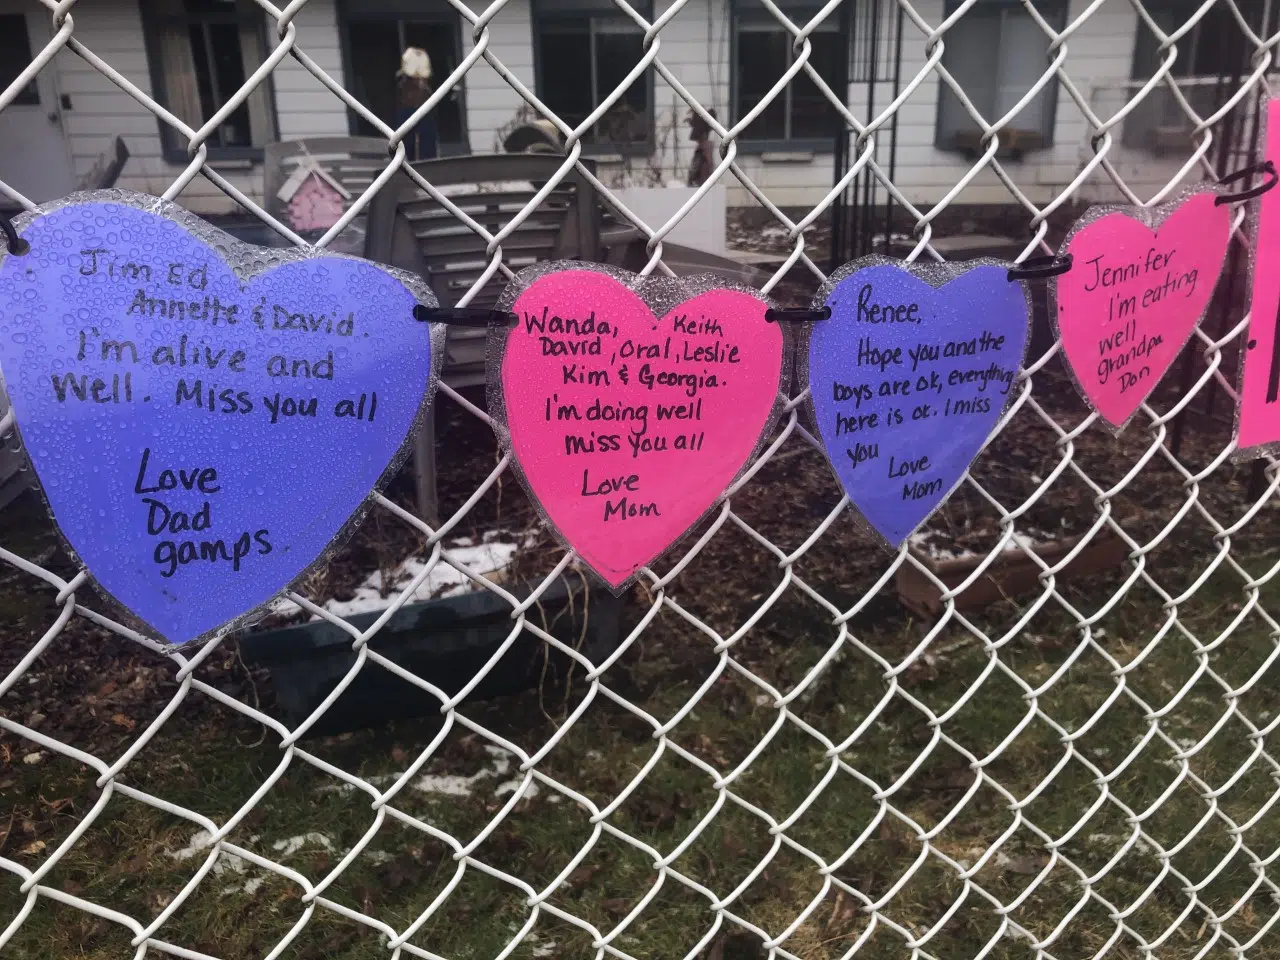 Jim, Ed
Annette & David.
I'm alive and
Well. Miss you all
Love
Dad
gamps.
Wanda, Keith
David, Oral, Leslie
Kim & Georgia.
I'm doing well
miss you all
Love
Mom
Renee,
Hope you and the
boys are ok, everything
here is ok. I miss
you
Love
Mom
Jennifer
I'm eating
well
grandpa
Don